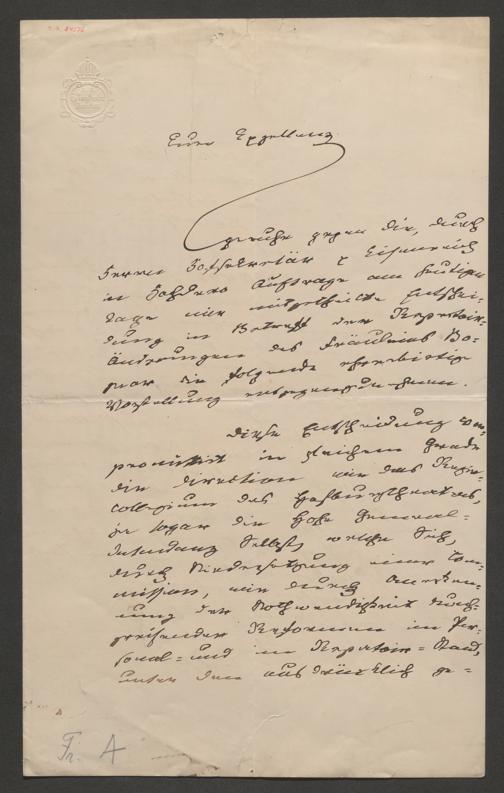 Eure Exzellenz
geruhe gegen die, durch
Herrn Hofsekretär v Eisenreich
in Hochdero Auftrage am heutigen
Tage mir mitgetheilte Entschei-
dung in Betreff der Repertoir-
Änderungen des Fräuleins Bo-
gnar die folgende ehrerbietige
Vorstellung entgegenzunehmen.
Diese Entscheidung com-
promittirt in gleichem Grade
die Direction wie das Regie-
collegium des Hofburgtheaters,
ja sogar die Hohe General-
Intendanz Selbst, welche Sich,
durch Niedersetzung einer Com-
mission, wie durch Anerken-
nung der Nothwendigkeit durch-
greifender Reformen im Per-
sonal- und im Repertoir-Stand,
unter dem ausdrücklich ge-
Fr. A